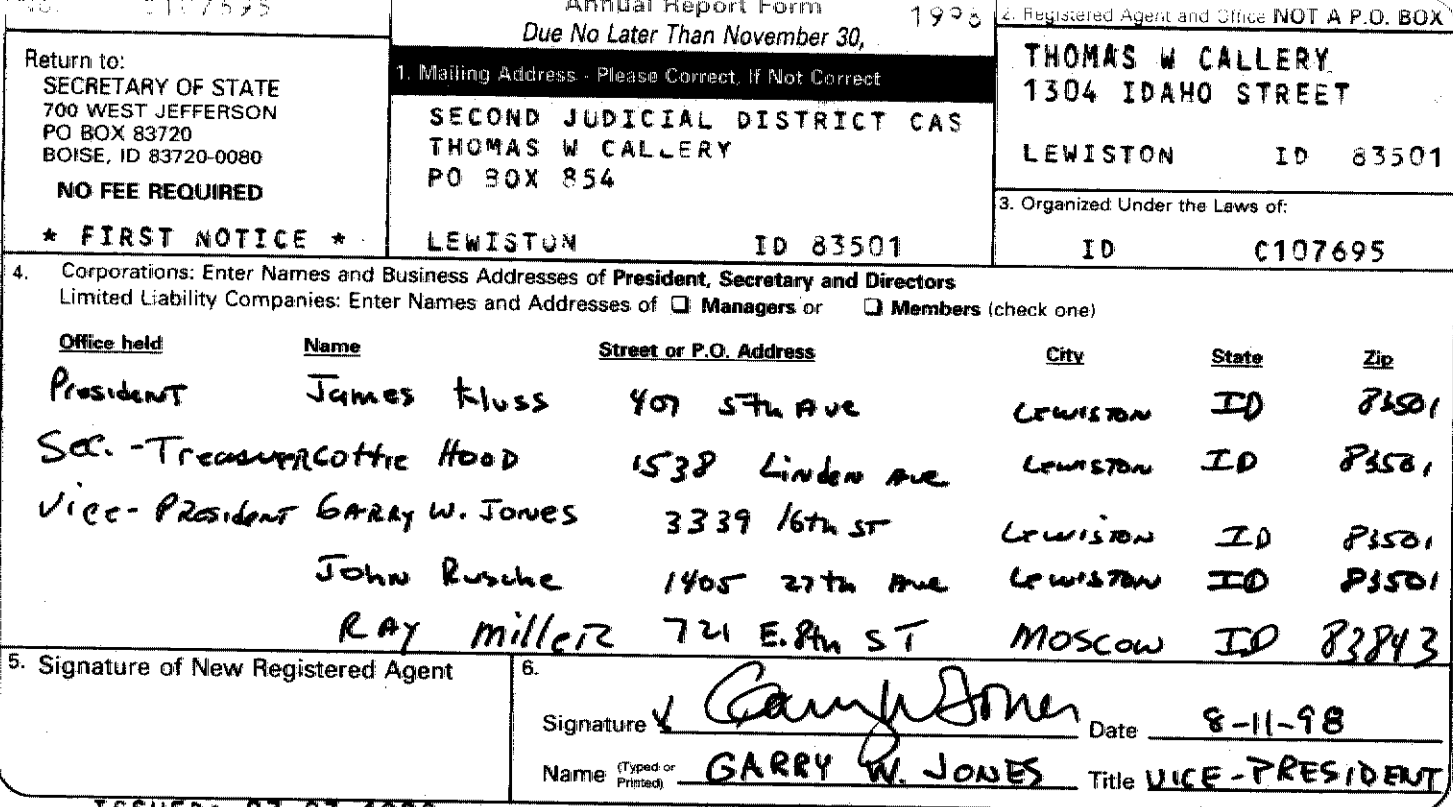 No. C107695
Annual Report Form 1998
Due No Later Than November 30,
Return to:
SECRETARY OF STATE
700 WEST JEFFERSON
PO BOX 83720
BOISE, ID 83720-0080
NO FEE REQUIRED
* FIRST NOTICE *
1. Mailing Address - Please Correct, If Not Correct
SECOND JUDICIAL DISTRICT CAS
THOMAS W CALLERY
PO BOX 854
LEWISTON ID 83501
2. Registered Agent and Office NOT A P.O. BOX
THOMAS W CALLERY
1304 IDAHO STREET
LEWISTON ID 83501
3. Organized Under the Laws of:
ID C107695
4. Corporations: Enter Names and Business Addresses of President, Secretary and Directors
Limited Liability Companies: Enter Names and Addresses of ❑ Managers or ❑ Members (check one)
Office held Name Street or P.O. Address City State Zip
President James Kluss 407 5th Ave Lewiston ID 83501
Sec. - Treasurer Cottie Hood 1538 Linden Ave Lewiston ID 83501
Vice-President Garry W. Jones 3339 16th ST Lewiston ID 83501
John Rusche 1405 27th Ave Lewiston ID 83501
RAY miller 721 E. 8th ST Moscow ID 83843
5. Signature of New Registered Agent
6.
Signature Garry W Jones Date 8-11-98
Name (Typed or Printed) GARRY W. JONES Title VICE-PRESIDENT